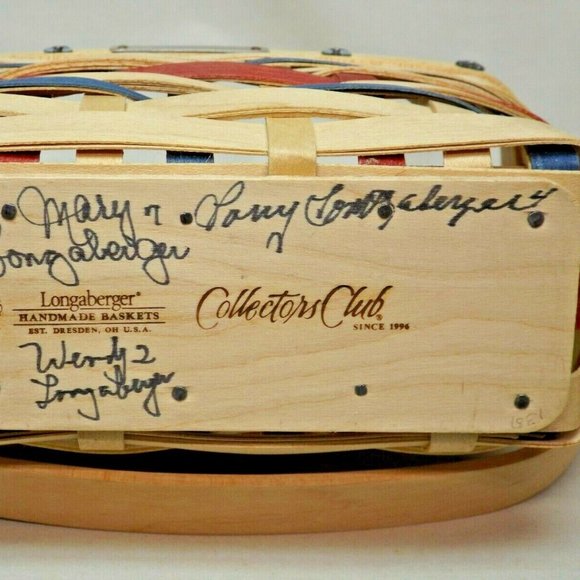 Mary 7 Larry Longaberger 4
Longaberger 7
Longaberger® Collectors Club®
HANDMADE BASKETS SINCE 1996
EST. DRESDEN, OH U.S.A.
Wendy 2
Longaberger